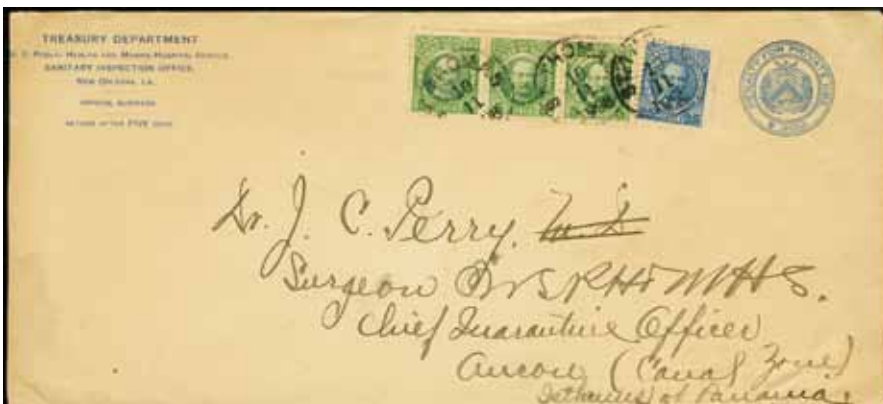 TREASURY DEPARTMENT
U. S. PUBLIC HEALTH AND MARINE-HOSPITAL SERVICE
SANITARY INSPECTION OFFICE,
NEW ORLEANS, LA.
OFFICIAL BUSINESS
RETURN AFTER FIVE DAYS
PENALTY FOR PRIVATE USE
$300
THOMAS
Dr. J. C. Perry. M. D
Surgeon U. S. P. H. & M H S.
Chief Quarantine Officer
Ancon (Canal Zone)
Isthmus of Panama.